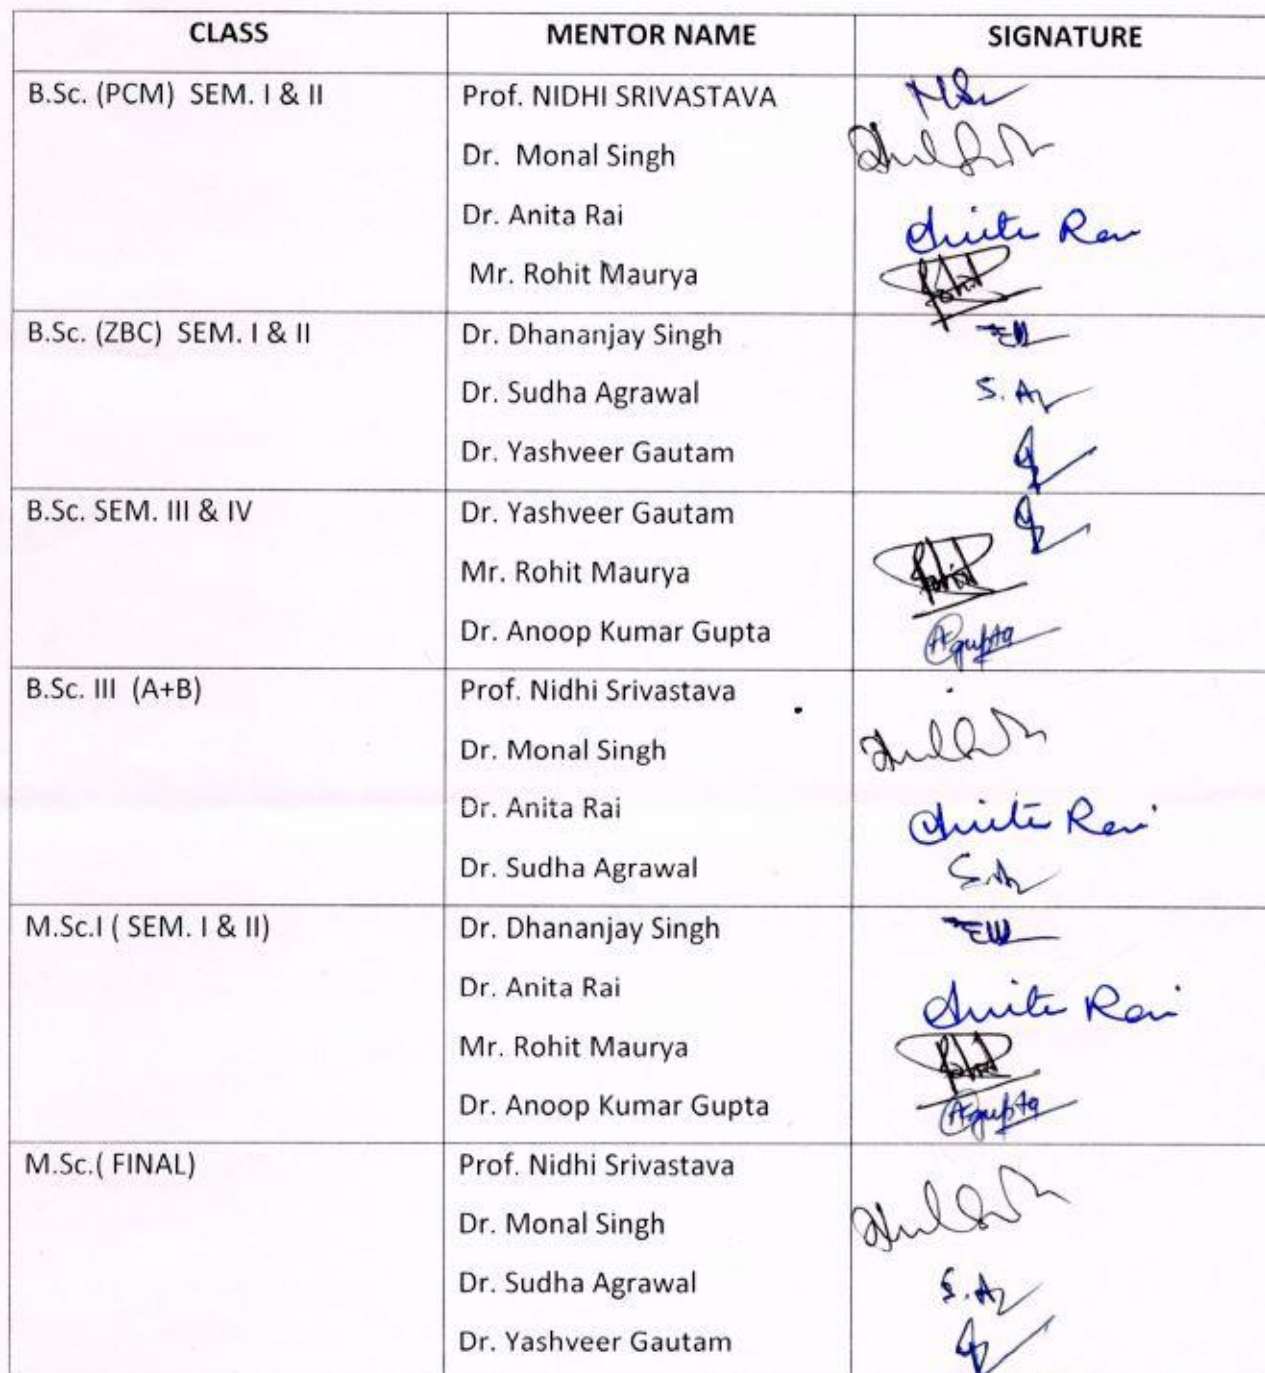 CLASS MENTOR NAME SIGNATURE
B.Sc. (PCM) SEM. I & II Prof. NIDHI SRIVASTAVA
Dr. Monal Singh
Dr. Anita Rai Anita Rai
Mr. Rohit Maurya Rohit
B.Sc. (ZBC) SEM. I & II Dr. Dhananjay Singh
Dr. Sudha Agrawal S. A
Dr. Yashveer Gautam
B.Sc. SEM. III & IV Dr. Yashveer Gautam
Mr. Rohit Maurya Rohit
Dr. Anoop Kumar Gupta AGupta
B.Sc. III (A+B) Prof. Nidhi Srivastava
Dr. Monal Singh
Dr. Anita Rai Anita Rai
Dr. Sudha Agrawal S.A
M.Sc.I ( SEM. I & II) Dr. Dhananjay Singh
Dr. Anita Rai Anita Rai
Mr. Rohit Maurya Rohit
Dr. Anoop Kumar Gupta AGupta
M.Sc.( FINAL) Prof. Nidhi Srivastava
Dr. Monal Singh
Dr. Sudha Agrawal S.A
Dr. Yashveer Gautam